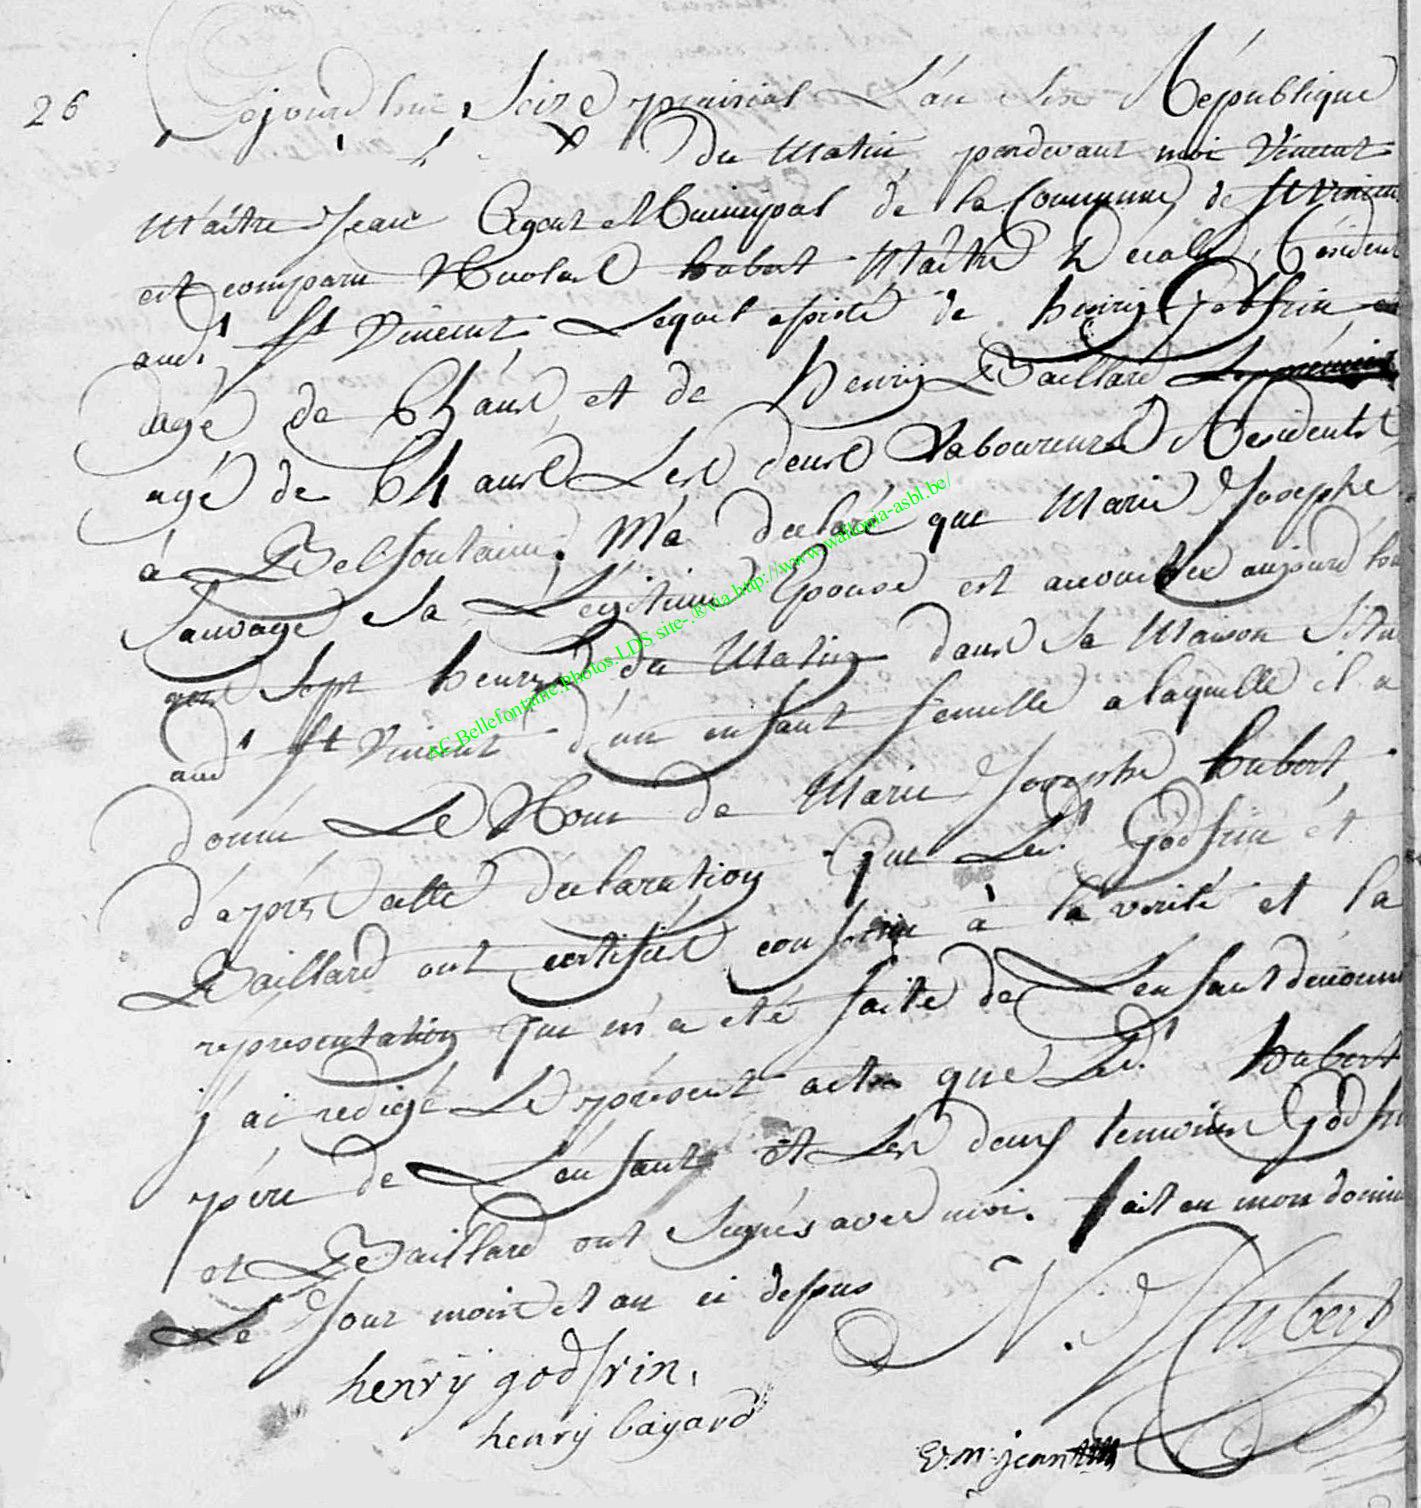 26
Cejourdhui Seize prairial L'an Six République
du Matin pardevant moi Vincent
Maître Jean Agent Municipal de la Commune de St Vincen
est comparu Nicolas hubert Maître D'école, Résident
aud.t St Vincent Lequel assisté de henry Godfrin
âgé de ans et de henry Baillard
agé de ans Les deux Laboureurs Residents
à Belfontaine. M'a déclaré que Marie Josephe
Sauvage Sa Légitime Epouse est accouchée aujourd hui
Sept heures du Matin dans Sa Maison Situ
aud.t St Vincent d'un enfant femelle a laquelle il a
donné Le Nom de Marie Josephe hubert,
d'après cette declaration Que Led.t Godfrin et
Baillard ont certifiés conforme à la verité et la
représentation Que m'a eté faite de L'enfant dénommé
j'ai redigé Le présent acte que Led.t hubert
père de L'enfant et Les deux temoins Godfri
et Baillard ont Signés avec moi. fait en mon domici
Le Jour mois et an ci dessus
N. Hubert
henry godfrin,
henry bayard
v. m. jean
AC.Bellefontaine.Photos.LDS site-.®via http://www.wallonia-asbl.be/